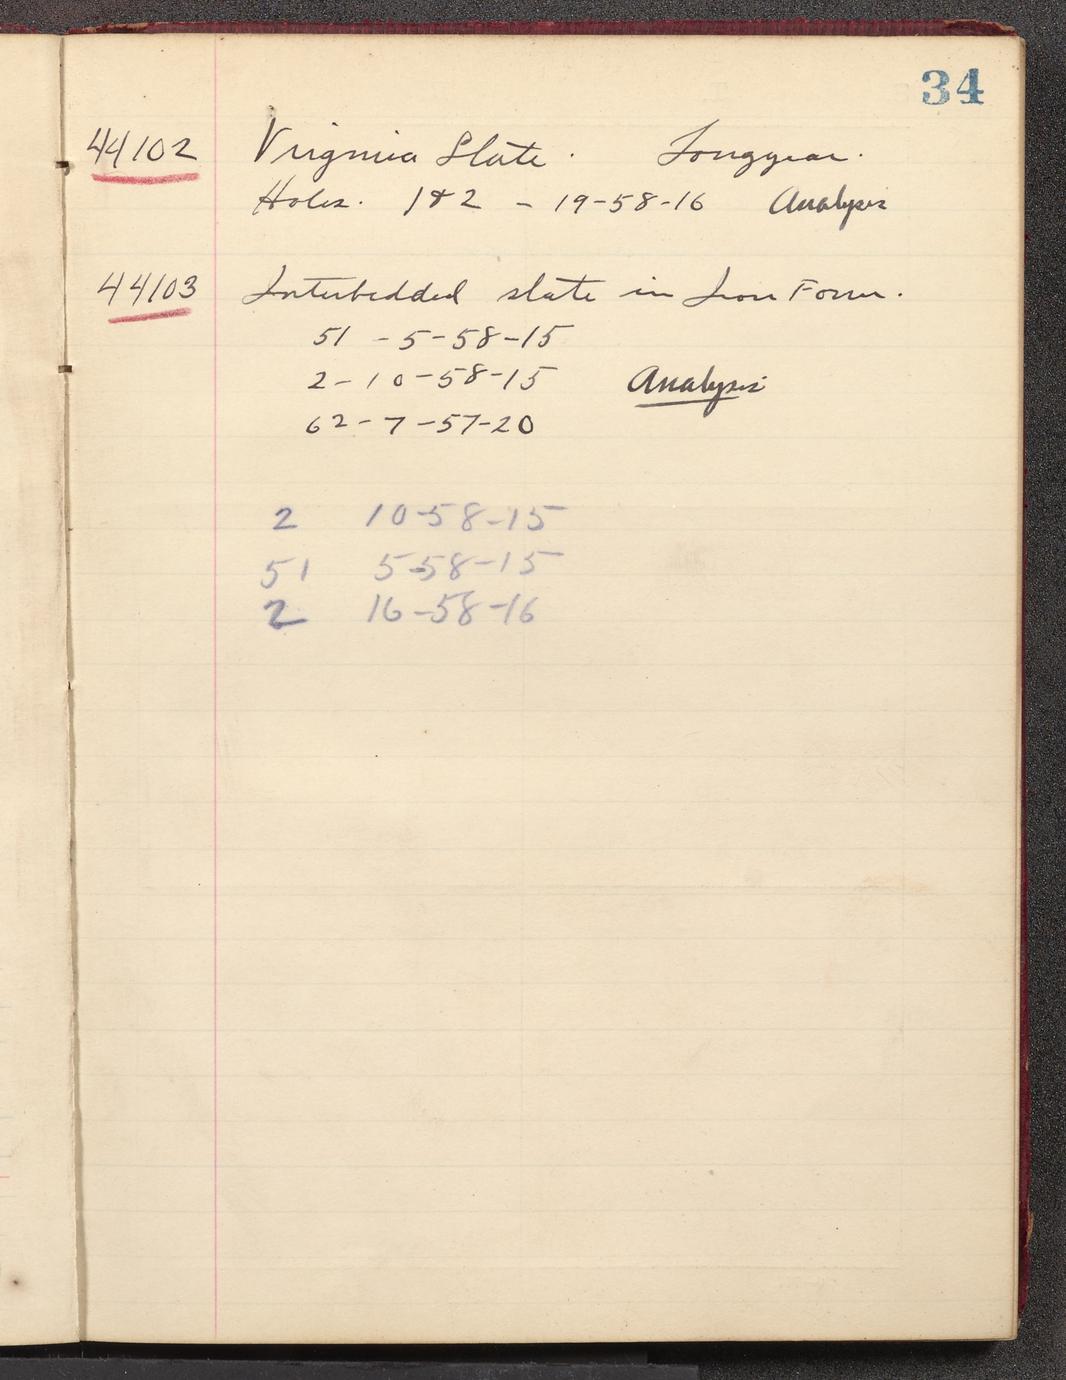 34
44102 Virginia Slate. Longyear.
Holes. 1 & 2 - 19-58-16 Analysis
44103 Interbedded slate in Iron Form.
51 - 5-58-15
2-10-58-15 Analysis
62-7-57-20
2 10-58-15
51 5-58-15
2 16-58-16